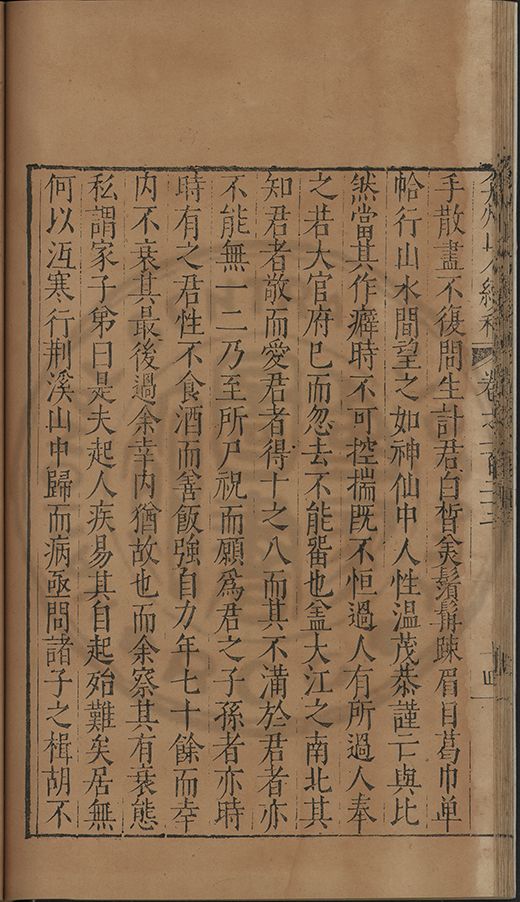 手散盡不復問生計君白皙美鬚髯疎眉目葛巾单
帢行山水間望之如神仙中人性溫茂恭謹亡與比
然當其作癖時不可控揣既不恒過人有所過人奉
之若大官府已而忽去不能畱也盖大江之南北其
知君者敬而愛君者得十之八而其不滿於君者亦
不能無一二乃至所尸祝而願爲君之子孫者亦時
時有之君性不食酒而善飯強自力年七十餘而幸
内不衰其最後過余幸内猶故也而余察其有衰態
私謂家子弟曰是夫起人疾易其自起殆難矣居無
何以沍寒行荆溪山中歸而病亟問諸子之楫胡不